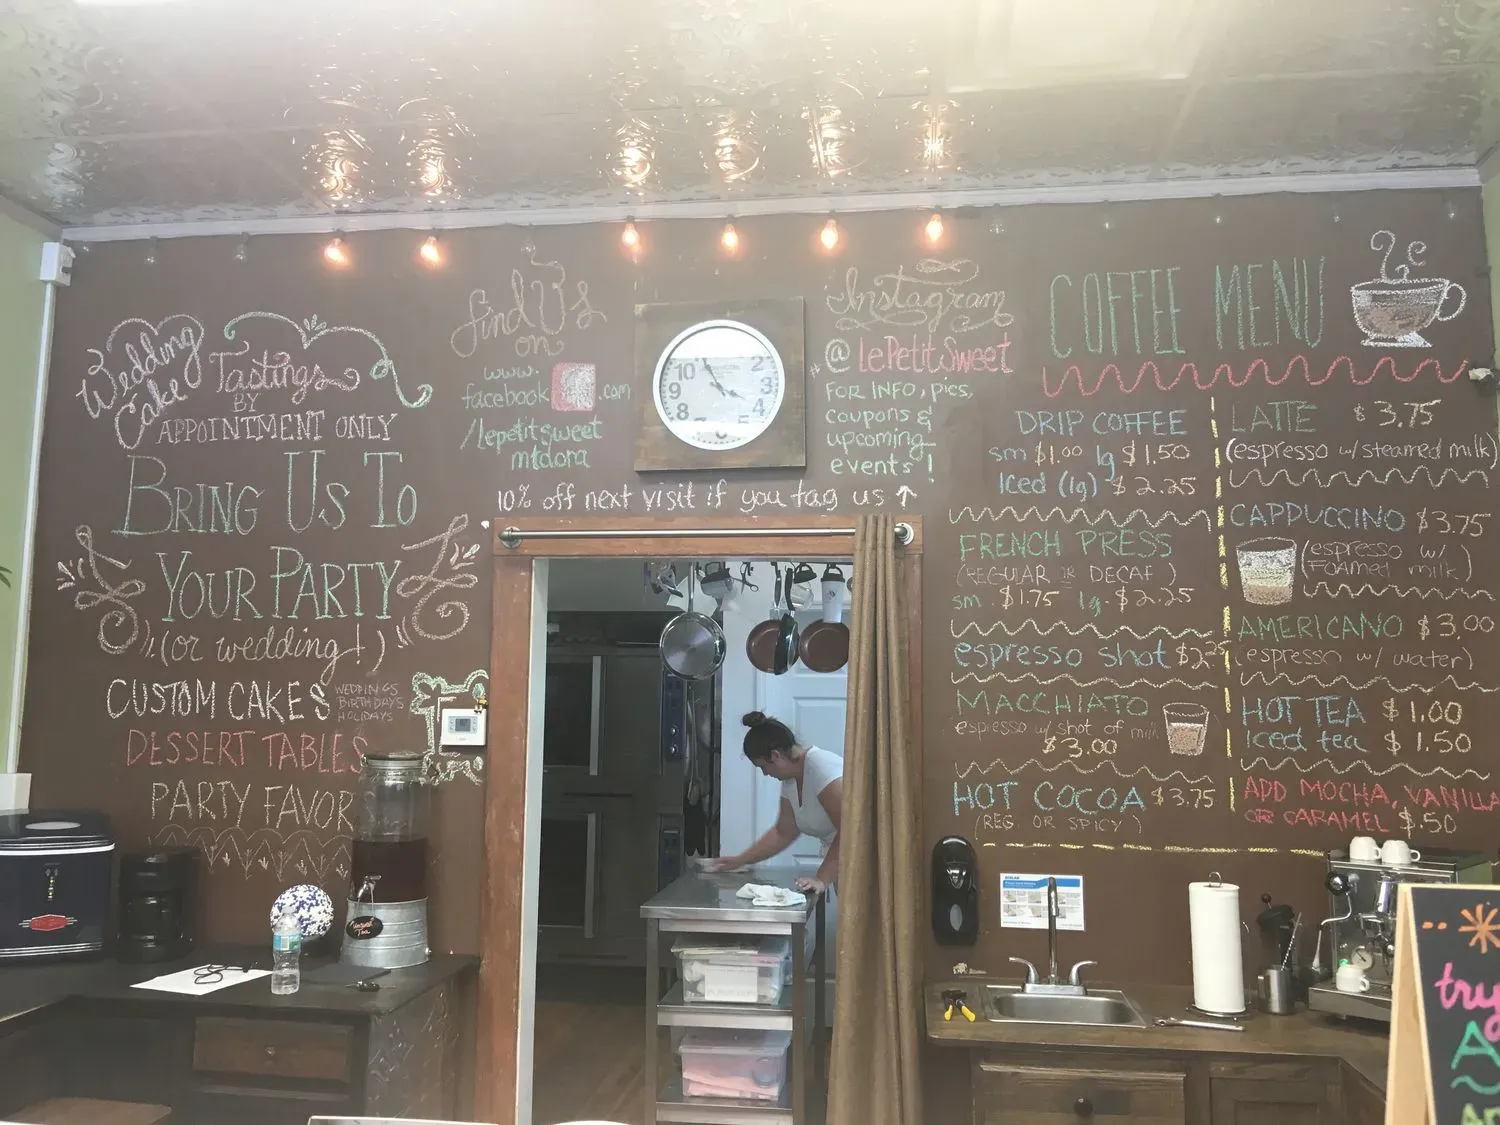 Wedding
Cake
Tastings
BY
APPOINTMENT ONLY
BRING US TO
YOUR PARTY
(or wedding!)
CUSTOM CAKES
WEDDINGS
BIRTHDAYS
HOLIDAYS
DESSERT TABLES
PARTY FAVOR
find Us
on
www.
facebook .com
/lepetitsweet
mtdora
10
2
9
3
8
4
Instagram
@ LePetitSweet
FOR INFO, pics,
coupons &
upcoming
events!
10% off next visit if you tag us ↑
COFFEE MENU
DRIP COFFEE
sm $1.00 lg $1.50
Iced (lg) $2.25
FRENCH PRESS
(REGULAR or DECAF)
sm. $1.75 lg. $2.25
espresso shot $2.25
MACCHIATO
espresso w/ shot of milk
$3.00
HOT COCOA $3.75
(REG. OR SPICY)
LATTE $3.75
(espresso w/steamed milk)
CAPPUCCINO $3.75
(espresso w/
foamed milk)
AMERICANO $3.00
(espresso w/ water)
HOT TEA $1.00
Iced tea $1.50
ADD MOCHA, VANILLA
OR CARAMEL $.50
ECOLAB
Tea
try
A